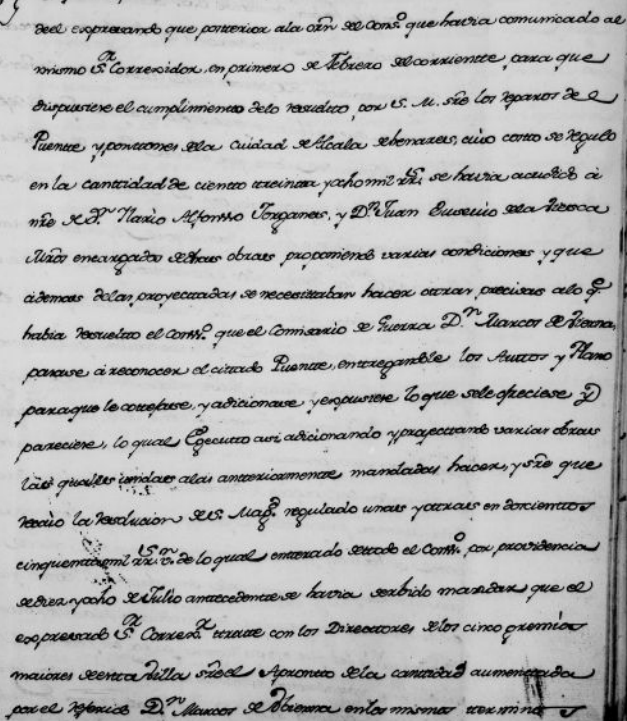 deel expresando que posterior ala orñ del Cons.º que havia comunicado al
mismo S.or Corregidor, en primero de Febrero del corriente, para que
dispusiere el cumplimiento delo resuelto por S. M. sre los reparos del
Puente y pontones dela Ciudad de Alcala de henares, cuio costo se regulo
en la cantidad de ciento treinta y ocho mil rr.s se havia acudido à
nre de D.n Hario Alfonsso Jorganes, y D.n Juan Eusevio dela Viesca
Mros encargados de dhas obras proponiendo varias condiciones y que
ademas delas proyectadas se necesitaban hacer otras precisas alo q.e
habia resuelto el Cons.º que el Comisario de Guerra D.n Marcos de Vierna,
pasase à reconocer el citado Puente, entregandole los Auttos y Plano
para que le cotejase, y adicionase y expusiere lo que sele ofreciese y
pareciere, lo qual Egecutto asi adicionando y proyectando varias obras
las quales unidas alas anteriormente mandadas hacer, y sre que
recaio la resolucion de S. Mag.d regulado unas y otras en doscientos
cinquenta mil rr.s v.n de lo qual enterado de todo el Cons.º por providencia
de diez y ocho de Julio antecedente se havia serbido mandar que el
expresado S.or Correg.or tratte con los Directores delos cinco gremios
maiores de esta Villa sre el Apronto dela cantidad aumentada
por el referido D.n Marcos de Vierna en los mismos terminos